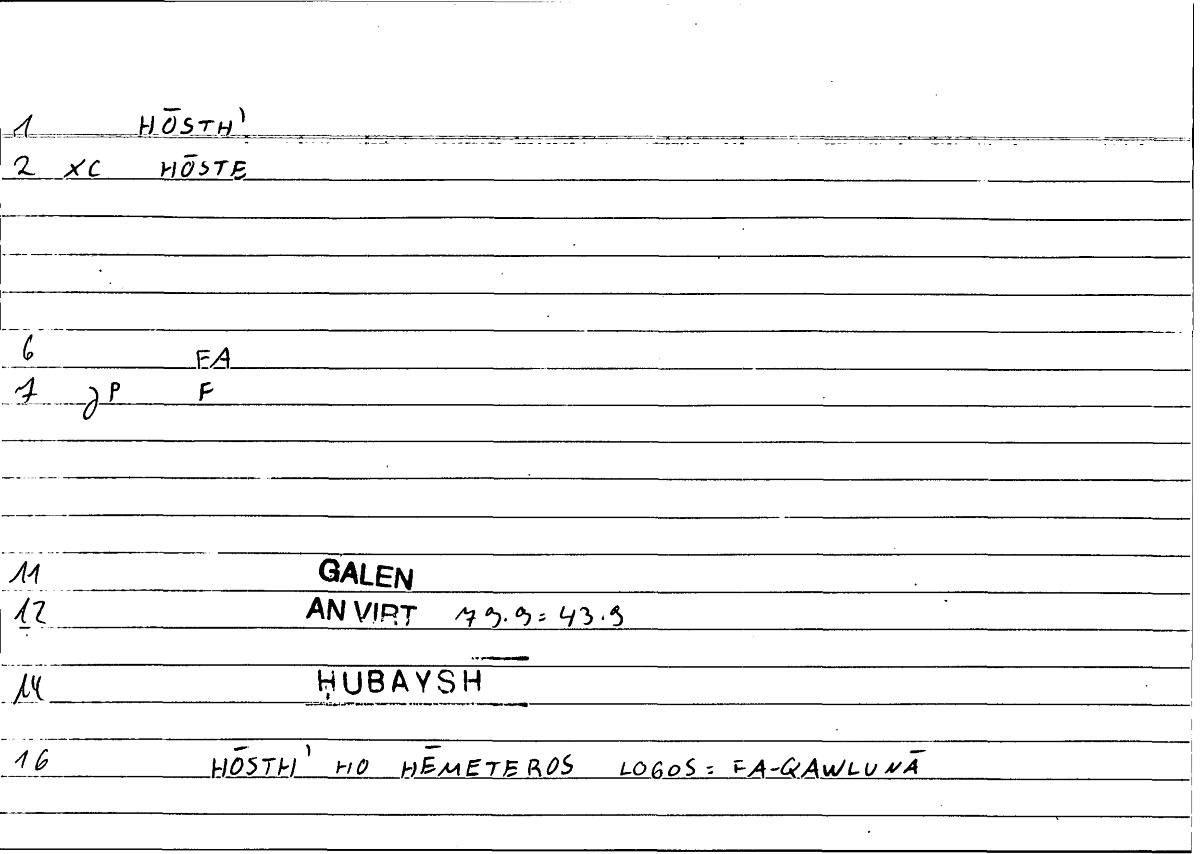 1 HŌSTH'
2 XC HŌSTE
6 FA
7 P F
11 GALEN
12 AN VIRT 79.9=43.9
14 ḤUBAYSH
16 HŌSTH' HO HĒMETEROS LOGOS = FA-QAWLUNĀ